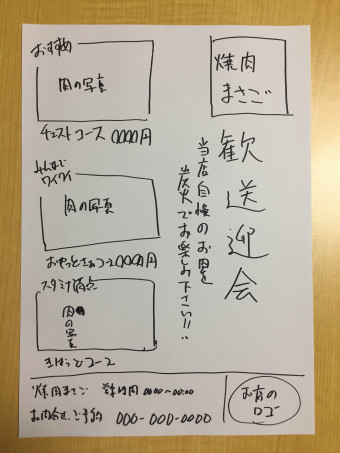 おすすめ
肉の写真
チェストコース 0000円
みんなで
ワイワイ
肉の写真
おやっとさぁコース0000円
スタミナ満点
肉の写真
きばっどコース
焼肉
まさご
歓送迎会
当店自慢のお肉を
炭火でお楽しみ下さい!!
焼肉まさご 営業時間 0000~00:00
お問合せ、ご予約 000-000-0000
お店の
ロゴ